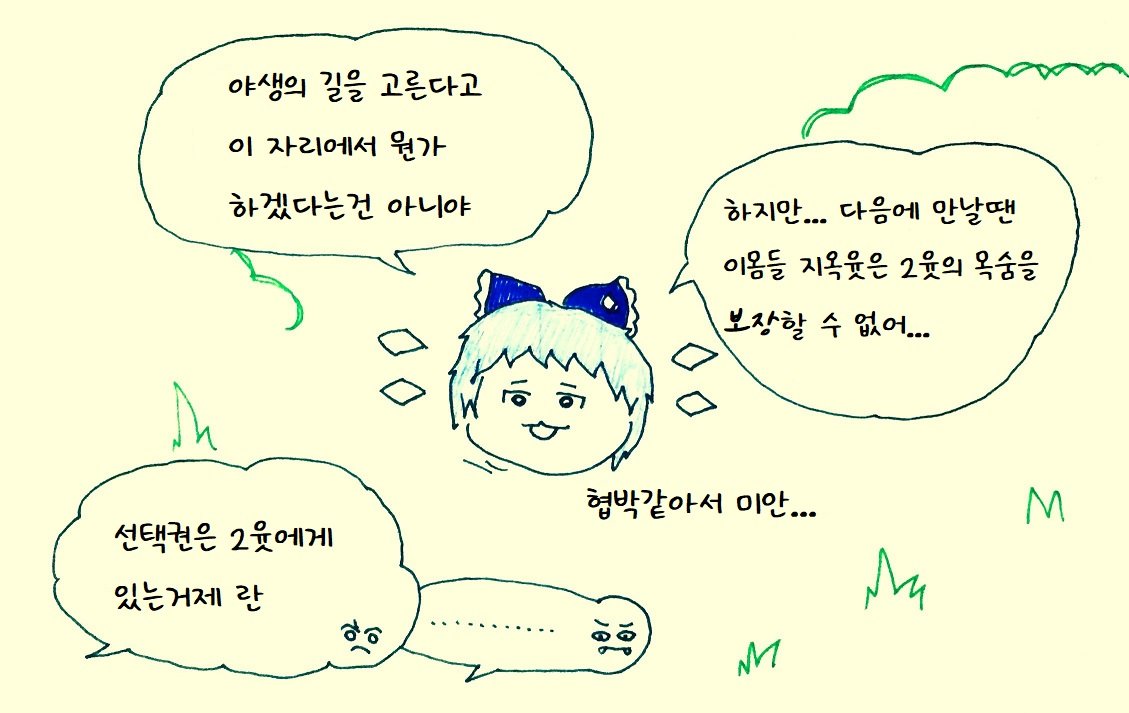 야생의 길을 고른다고
이 자리에서 뭔가
하겠다는건 아니야
하지만... 다음에 만날땐
이몸들 지옥윳은 2윳의 목숨을
보장할 수 없어...
협박같아서 미안...
선택권은 2윳에게
있는거제 란
............